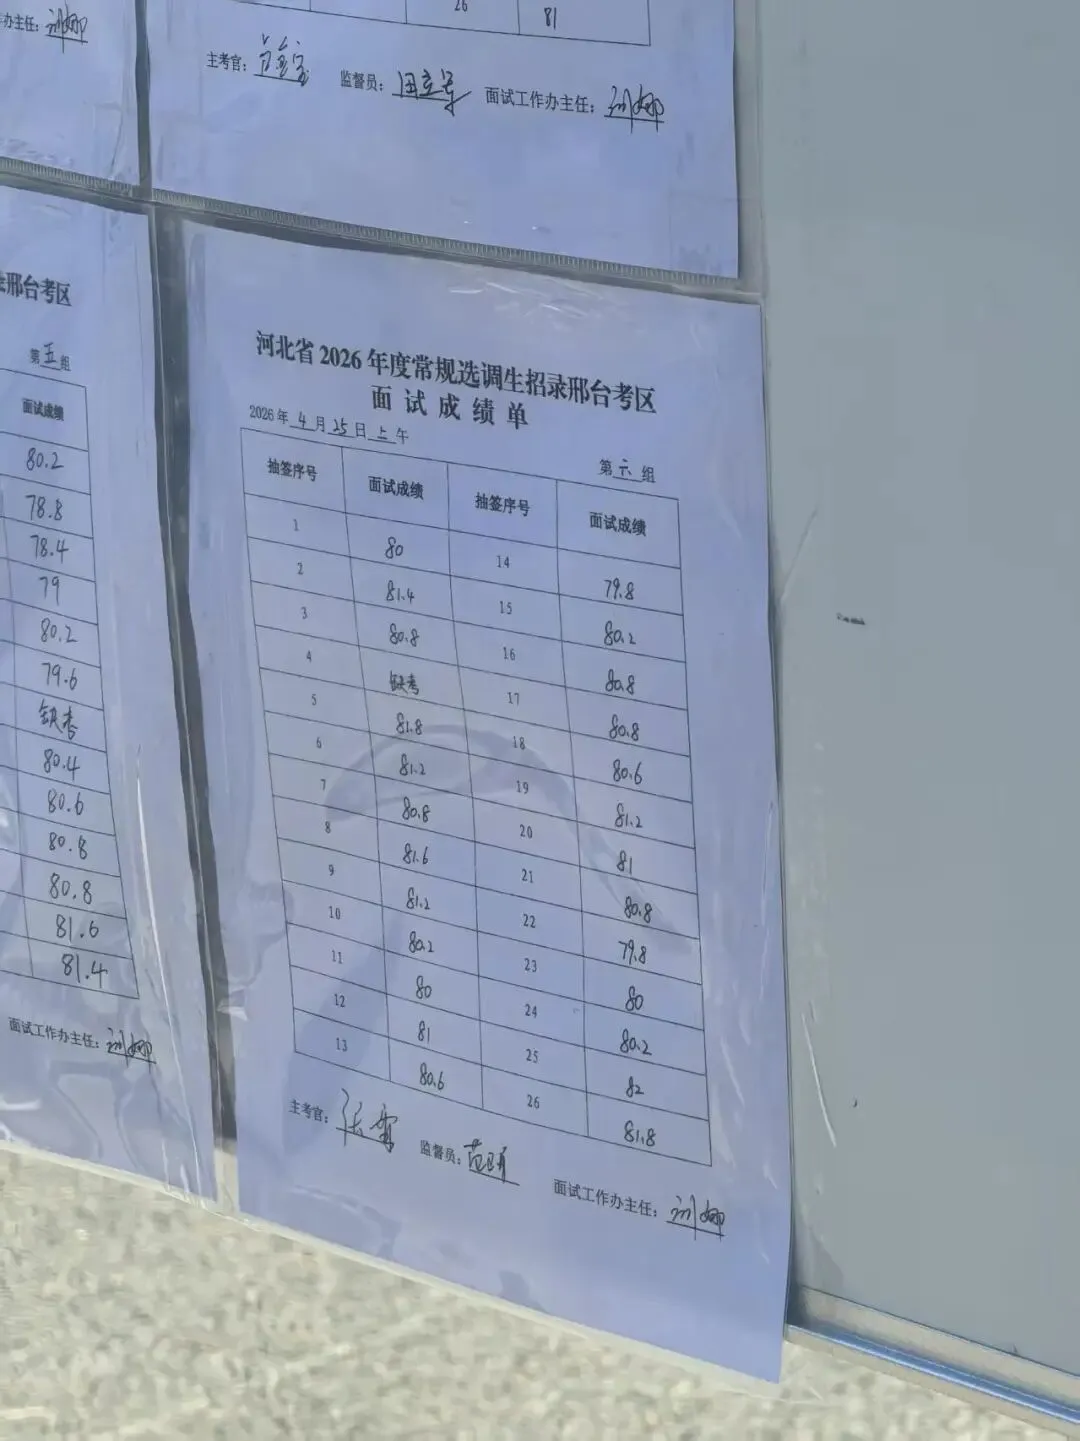 26 81
主考官：
监督员：田立军 面试工作办主任：刘娜
办主任：刘娜
邢台考区
第五组
面试成绩
80.2
78.8
78.4
79
80.2
79.6
缺考
80.4
80.6
80.8
80.8
81.6
81.4
面试工作办主任：刘娜
河北省2026年度常规选调生招录邢台考区
面试成绩单
2026年4月25日上午
第六组
抽签序号 面试成绩 抽签序号 面试成绩
1 80 14 79.8
2 81.4 15 80.2
3 80.8 16 80.8
4 缺考 17 80.8
5 81.8 18 80.6
6 81.2 19 81.2
7 80.8 20 81
8 81.6 21 80.8
9 81.2 22 79.8
10 80.2 23 80
11 80 24 80.2
12 81 25 82
13 80.6 26 81.8
主考官：
监督员： 面试工作办主任：刘娜